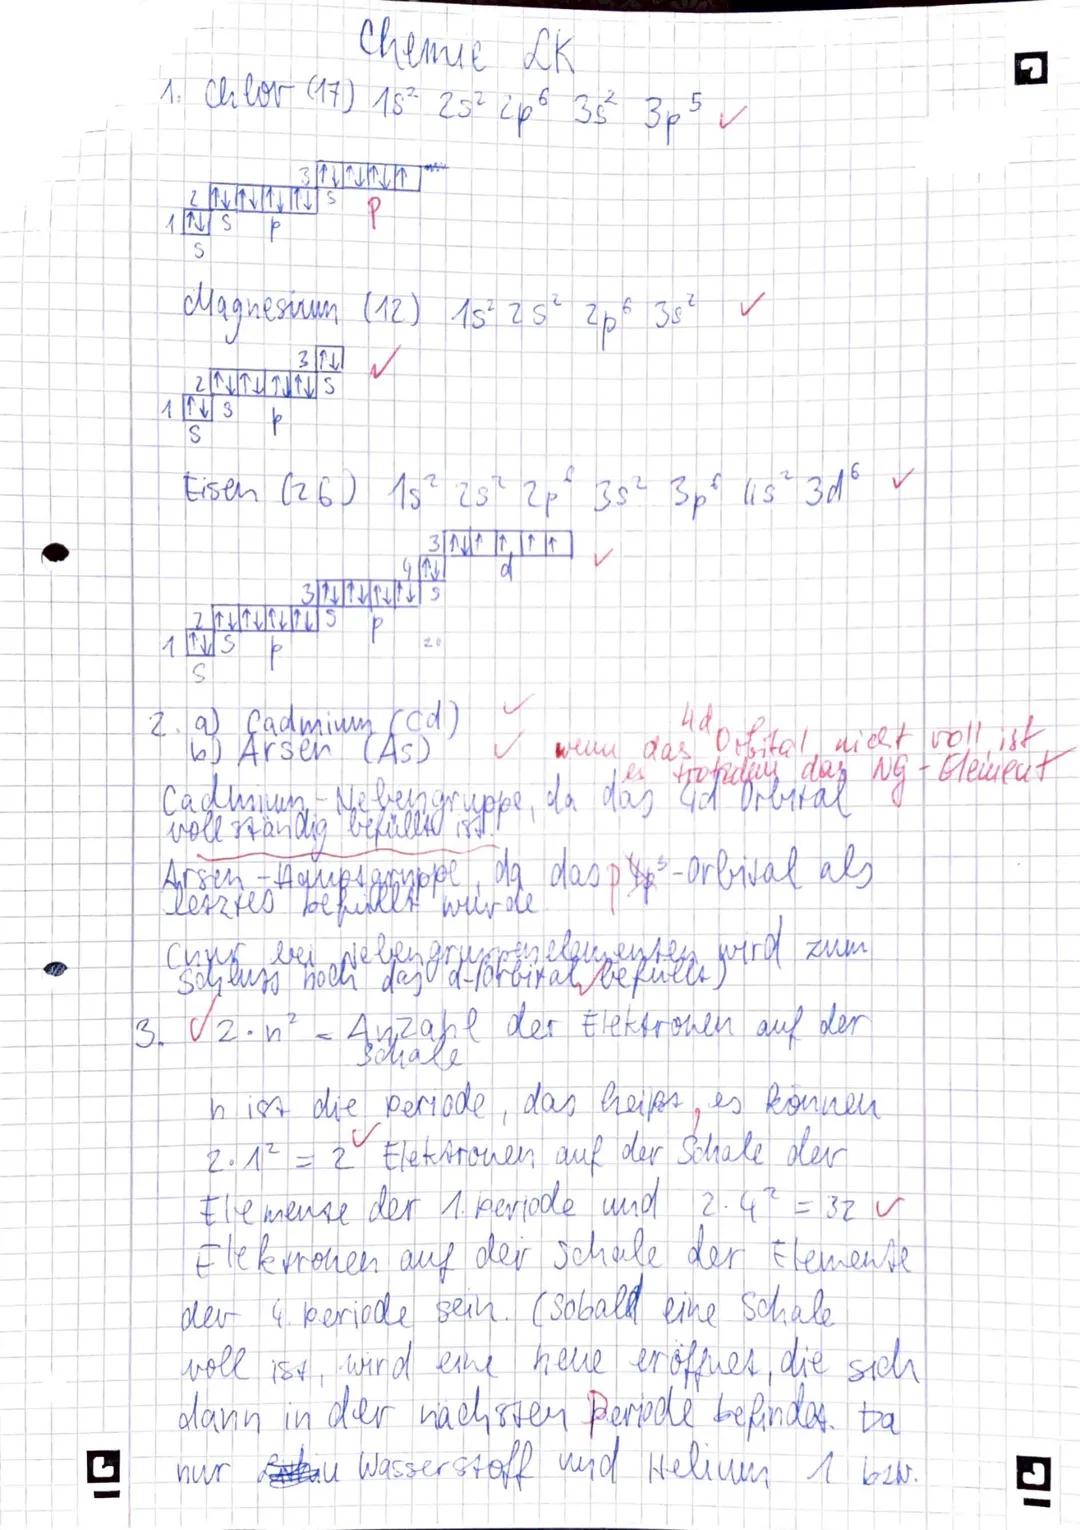 Chemie LK
1. Chlor (17) 1s² 2s² 2p⁶ 3s² 3p⁵ ✓
3 ↑↓ ↑↓ ↑↓ ↑
2 ↑↓ ↑↓ ↑↓ ↑↓ s p
1 ↑↓ s p
s
Magnesium (12) 1s² 2s² 2p⁶ 3s² ✓
3 ↑↓ ✓
2 ↑↓ ↑↓ ↑↓ ↑↓ s
1 ↑↓ s p
s
Eisen (26) 1s² 2s² 2p⁶ 3s² 3p⁶ 4s² 3d⁶ ✓
3 ↑↓ ↑ ↑ ↑ ↑ ✓
4 ↑↓ d
3 ↑↓ ↑↓ ↑↓ ↑↓ s
2 ↑↓ ↑↓ ↑↓ ↑↓ s p
1 ↑↓ s p 20
s
2. a) Cadmium (Cd) ✓
b) Arsen (As) ✓
wenn das 4d Orbital nicht voll ist
es trotzdem das NG-Element
Cadmium - Nebengruppe, da das 4d Orbital
vollständig befüllt ist.
Arsen - Hauptgruppe, da das p -Orbital als
letztes befüllt wurde
(nur bei Nebengruppenelementen wird zum
Schluss noch das d-Orbital befüllt)
3. ✓ 2·n² = Anzahl der Elektronen auf der
Schale
n ist die periode, das heißt, es können
2·1² = 2 ✓ Elektronen auf der Schale der
Elemente der 1. periode und 2·4² = 32 ✓
Elektronen auf der Schale der Elemente
der 4. periode sein. (Sobald eine Schale
voll ist, wird eine neue eröffnet, die sich
dann in der nächsten Periode befindet. Da
nur Wasserstoff und Helium 1 bzw.